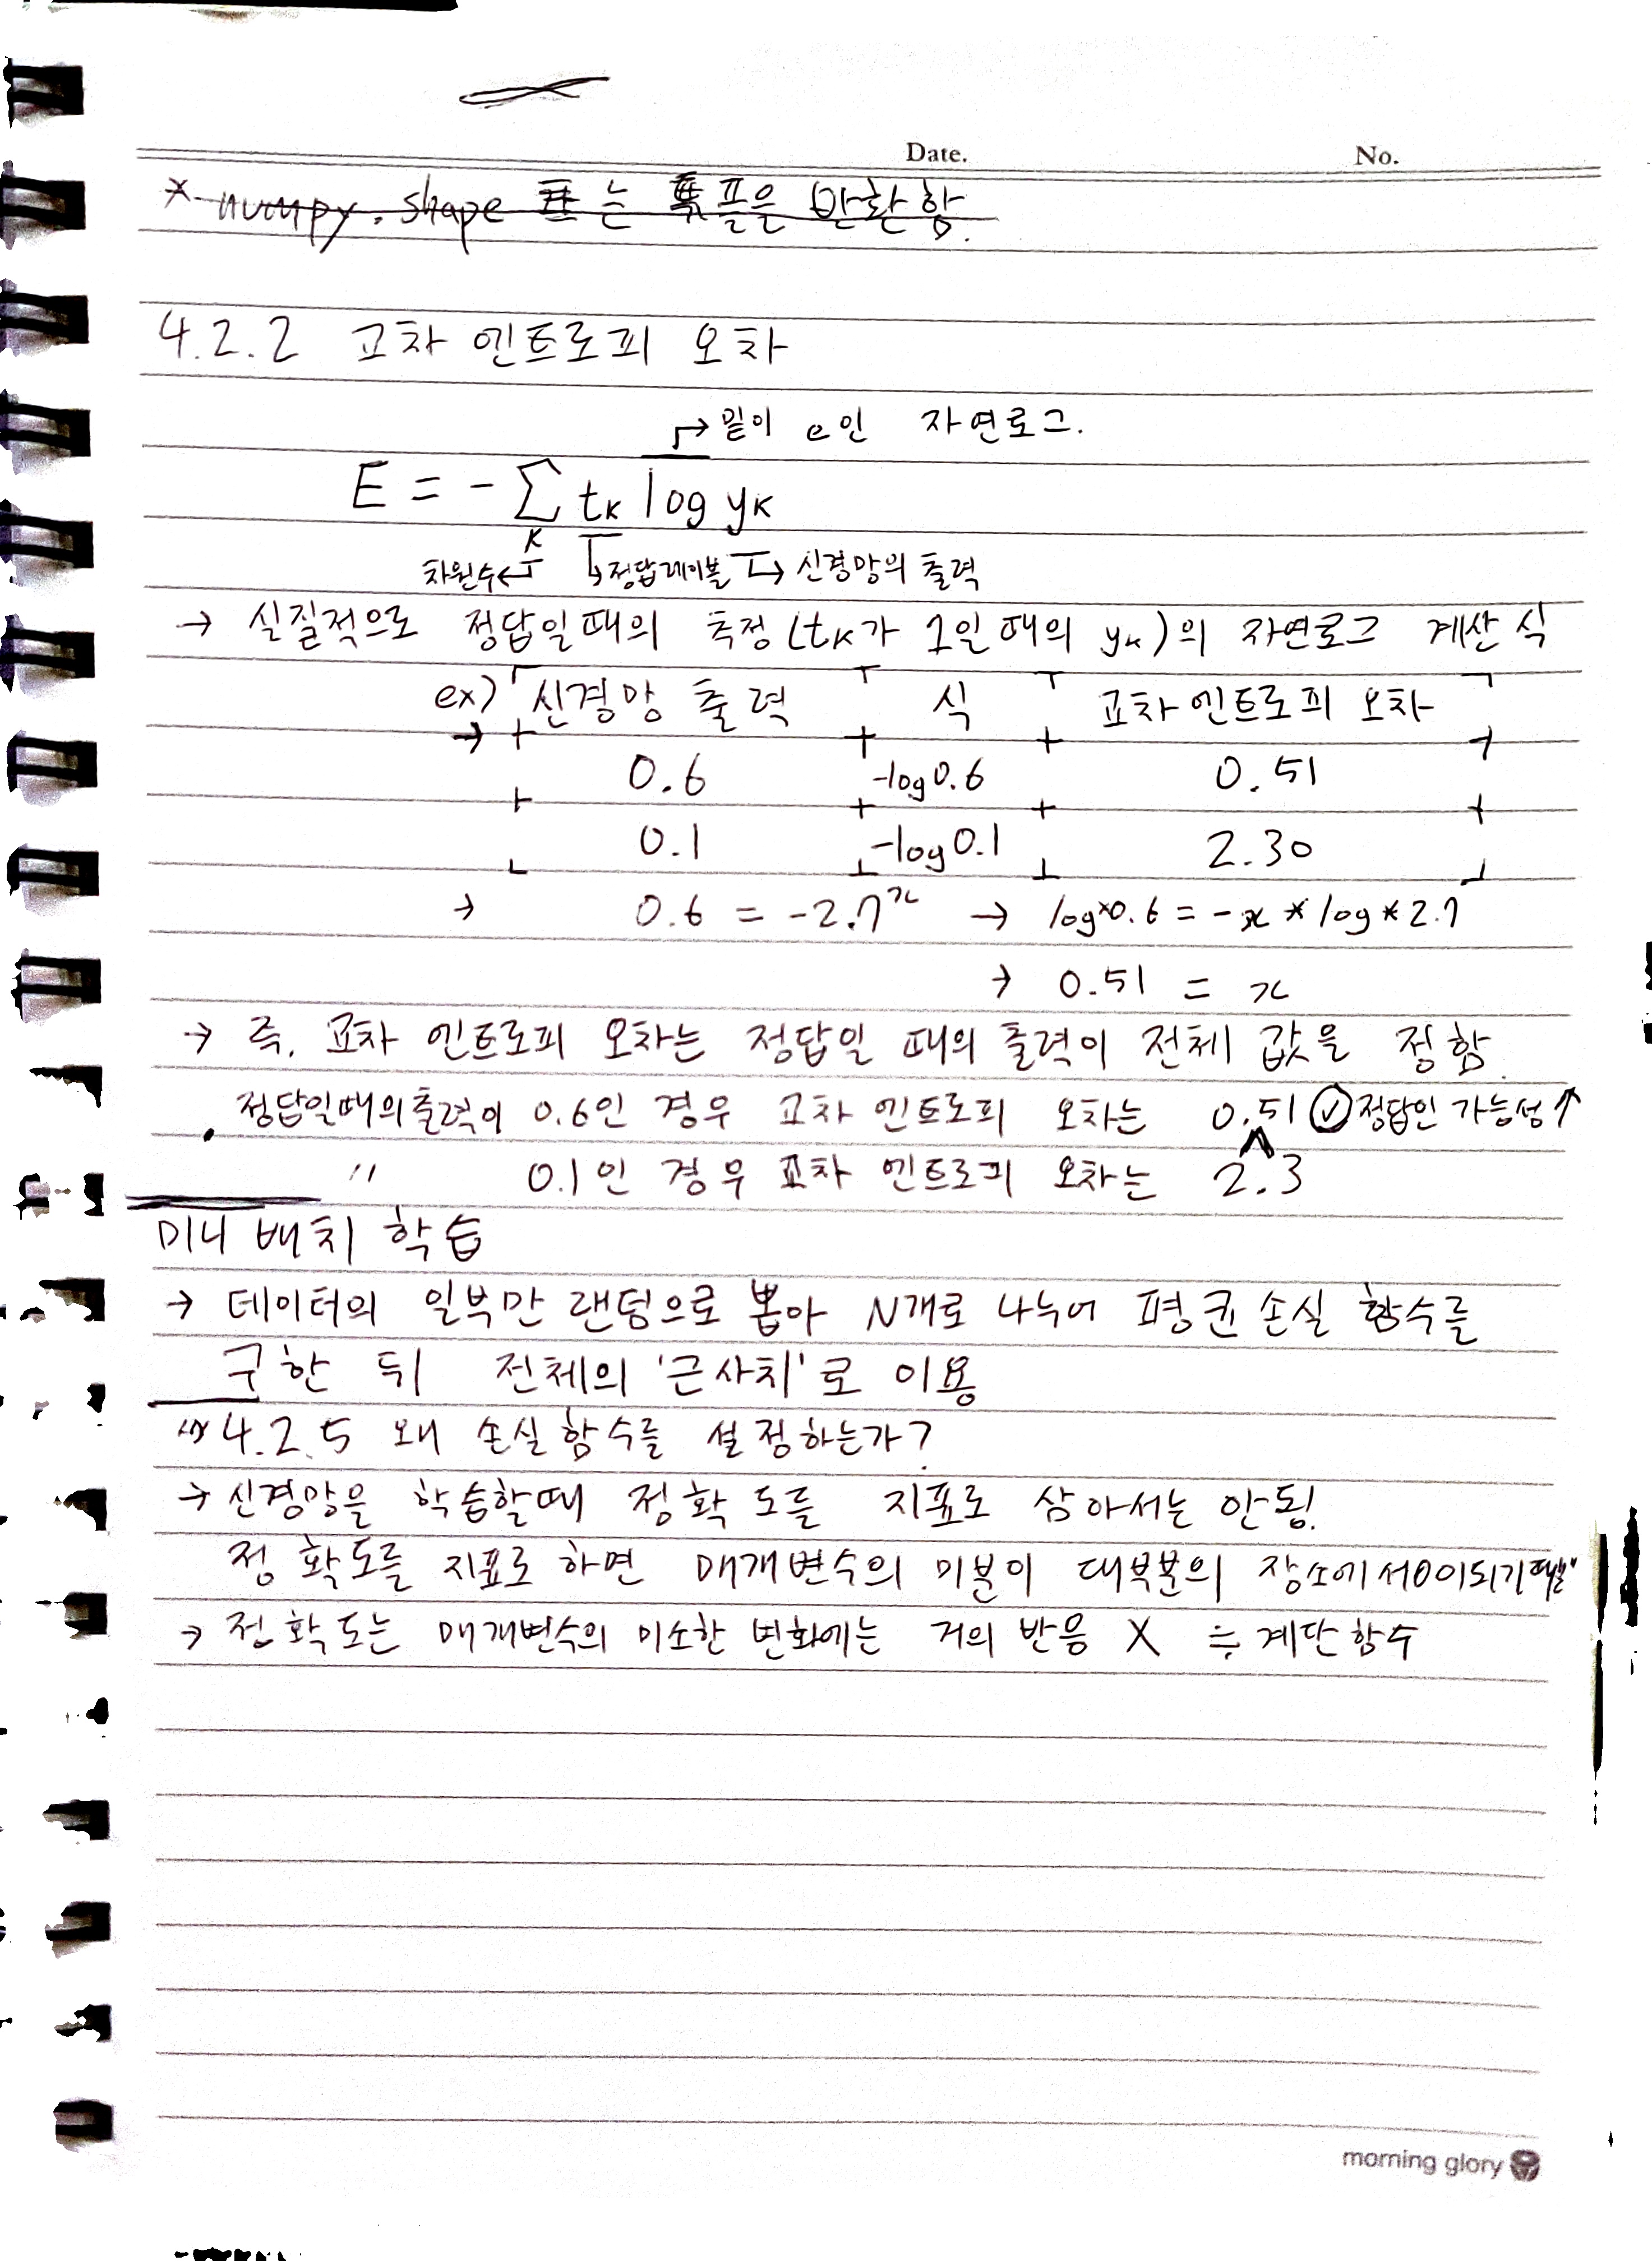 Date. No.
* numpy. shape 는 튜플을 반환함.
4.2.2 교차 엔트로피 오차
↱ 밑이 e인 자연로그.
E = - ∑ tk log yk
K
차원수 ← ↳ 정답레이블 ↳ 신경망의 출력
→ 실질적으로 정답일때의 추정(tk가 1일때의 yk)의 자연로그 계산 식
ex) 신경망 출력 식 교차 엔트로피 오차
→ 0.6 -log0.6 0.51
0.1 -log0.1 2.30
→ 0.6 = -2.7ˣ → log*0.6 = -x * log * 2.7
→ 0.51 = x
→ 즉. 교차 엔트로피 오차는 정답일 때의 출력이 전체 값을 정함.
정답일때의출력이 0.6인 경우 교차 엔트로피 오차는 0.51 ✓ 정답인 가능성↑
∧
" 0.1인 경우 교차 엔트로피 오차는 2.3
미니 배치 학습
→ 데이터의 일부만 랜덤으로 뽑아 N개로 나누어 평균손실 함수를
구한 뒤 전체의 '근사치'로 이용
⇒ 4.2.5 왜 손실함수를 설정하는가?
→ 신경망을 학습할때 정확도를 지표로 삼아서는 안됨!
정확도를 지표로 하면 매개변수의 미분이 대부분의 장소에서0이되기때문
→ 정확도는 매개변수의 미소한 변화에는 거의 반응 X ≒ 계단함수
morning glory